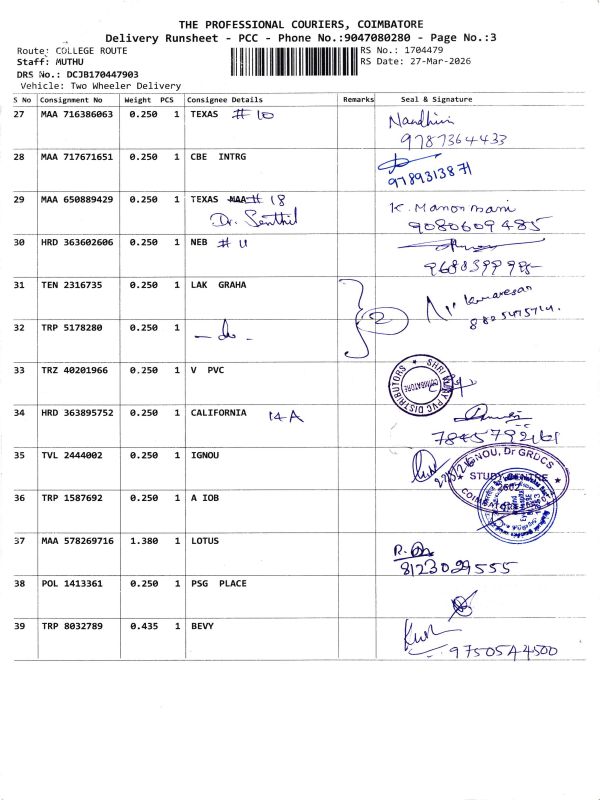 THE PROFESSIONAL COURIERS, COIMBATORE
Delivery Runsheet - PCC - Phone No.:9047080280 - Page No.:3
Route: COLLEGE ROUTE RS No.: 1704479
Staff: MUTHU RS Date: 27-Mar-2026
DRS No.: DCJB170447903
Vehicle: Two Wheeler Delivery
S No Consignment No Weight PCS Consignee Details Remarks Seal & Signature
27 MAA 716386063 0.250 1 TEXAS # 10 Nandhini
9787364433
28 MAA 717671651 0.250 1 CBE INTRG
9789313871
29 MAA 650889429 0.250 1 TEXAS MAA # 18 K. Manonmani
Dr. Senthil 9080609485
30 HRD 363602606 0.250 1 NEB # 11
31 TEN 2316735 0.250 1 LAK GRAHA 2 Kumaresan
32 TRP 5178280 0.250 1 - do -
33 TRZ 40201966 0.250 1 V PVC
SHRI VIJAY PVC DISTRIBUTORS
COIMBATORE
34 HRD 363895752 0.250 1 CALIFORNIA 14A
7845792161
35 TVL 2444002 0.250 1 IGNOU
IGNOU, Dr GRDCS
STUDY CENTRE
36 TRP 1587692 0.250 1 A IOB
37 MAA 578269716 1.380 1 LOTUS
8123029555
38 POL 1413361 0.250 1 PSG PLACE
39 TRP 8032789 0.435 1 BEVY
9750544500